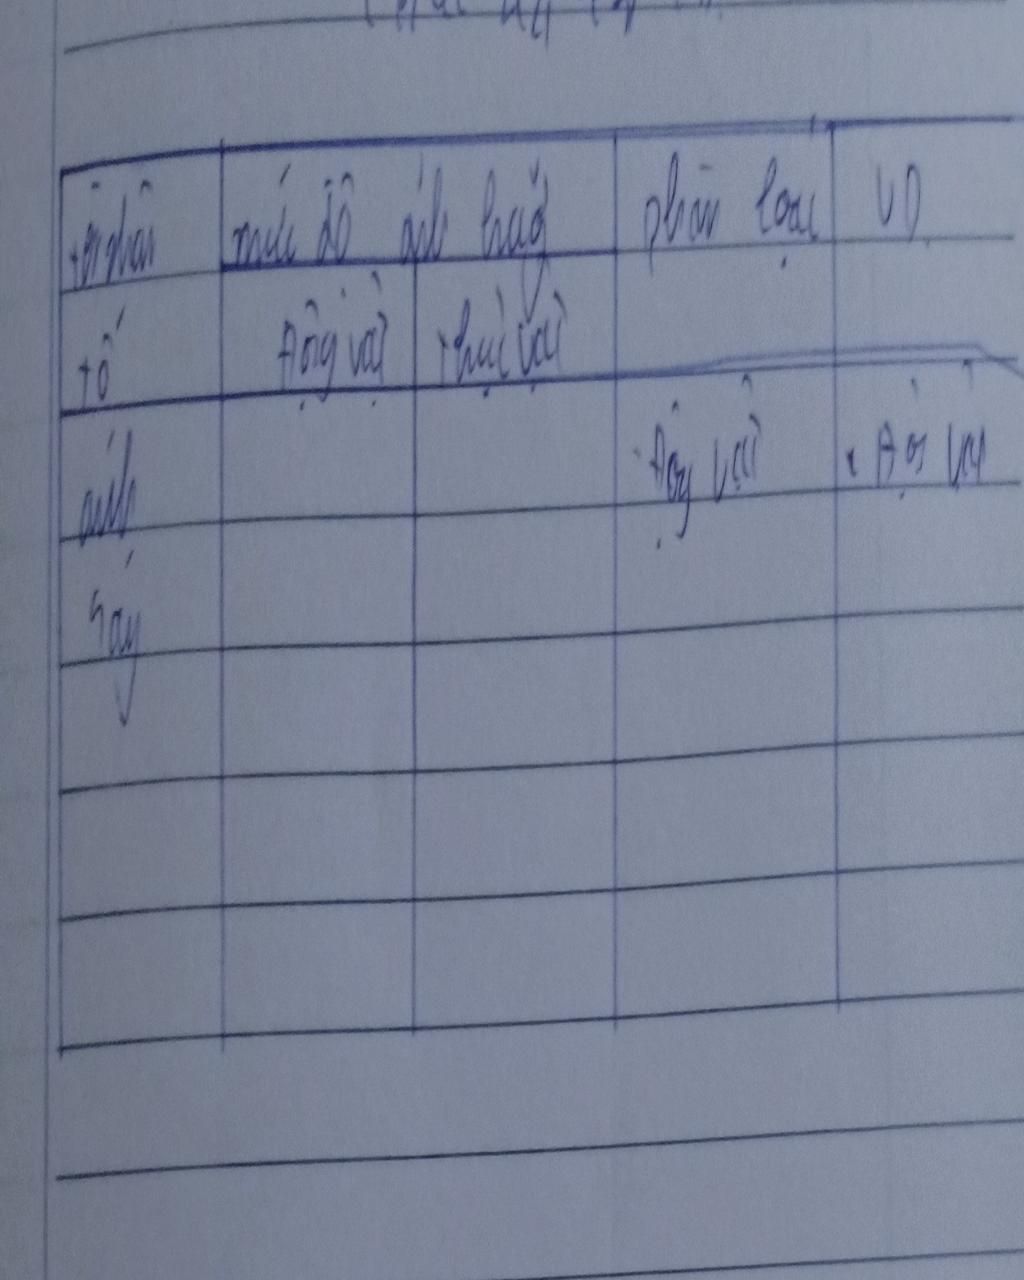 nhân mức độ ảnh hưởng phân loại VD
tố Động vật thực vật
ánh Động vật Động vật
sáng